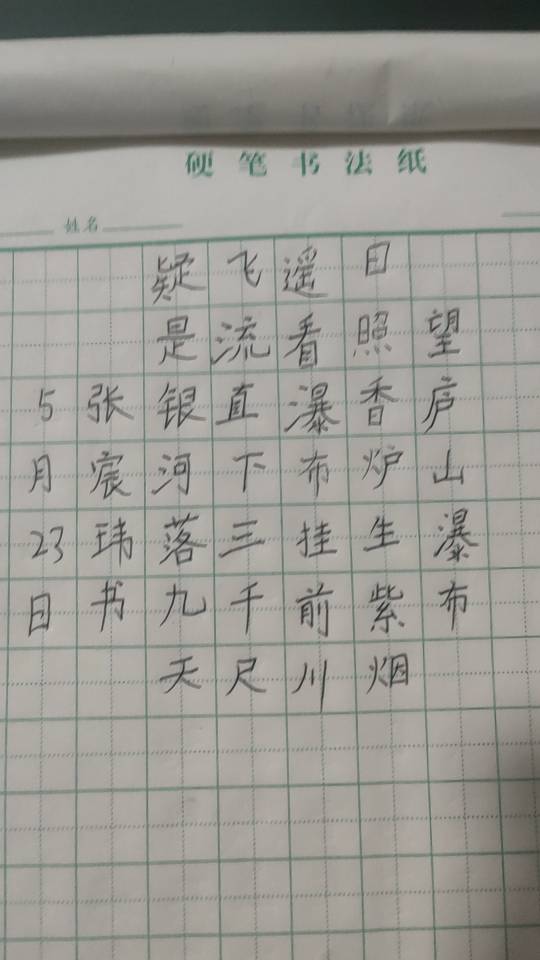 硬笔书法纸
姓名
望庐山瀑布
日照香炉生紫烟
遥看瀑布挂前川
飞流直下三千尺
疑是银河落九天
张宸玮书
5月23日